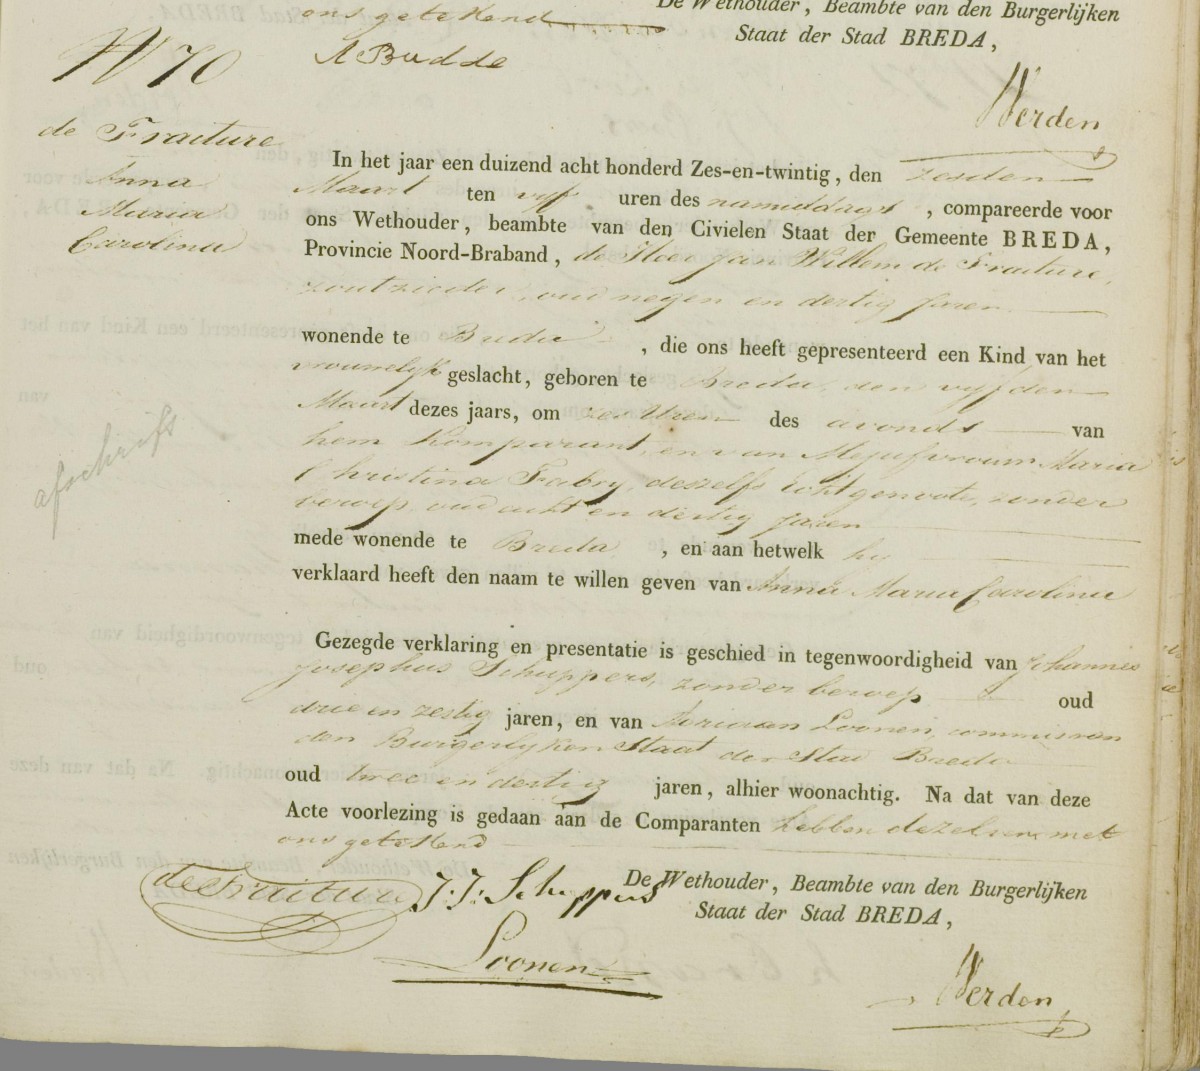 ons getekend
De Wethouder, Beambte van den Burgerlijken
Staat der Stad BREDA,
A Budde
Werden
N 70
de Fraiture
Anna
Maria
Carolina
In het jaar een duizend acht honderd Zes-en-twintig, den zesden
Maart ten vyf uren des namiddags, compareerde voor
ons Wethouder, beambte van den Civielen Staat der Gemeente BREDA,
Provincie Noord-Braband, de Heer Jan Willem de Fraiture,
zoutzieder, oud negen en dertig jaren
wonende te Breda, die ons heeft gepresenteerd een Kind van het
vrouwelyk geslacht, geboren te Breda, den vyfden
Maart dezes jaars, om zes Uren des avonds van
hem Komparant, en van Mejufvrouw Maria
Christina Fabry, deszelfs Echtgenoote, zonder
beroep, oud acht en dertig jaren
mede wonende te Breda, en aan hetwelk hy
verklaard heeft den naam te willen geven van Anna Maria Carolina
afschrift
Gezegde verklaring en presentatie is geschied in tegenwoordigheid van Johannes
Josephus Schippers, zonder beroep oud
drie en zestig jaren, en van Adriaan Loonen, commis van
den Burgerlyken Staat der Stad Breda
oud twee en dertig jaren, alhier woonachtig. Na dat van deze
Acte voorlezing is gedaan aan de Comparanten hebben dezelven met
ons getekend
De Wethouder, Beambte van den Burgerlijken
Staat der Stad BREDA,
de Fraiture J: J: Schippers
Loonen
Werden